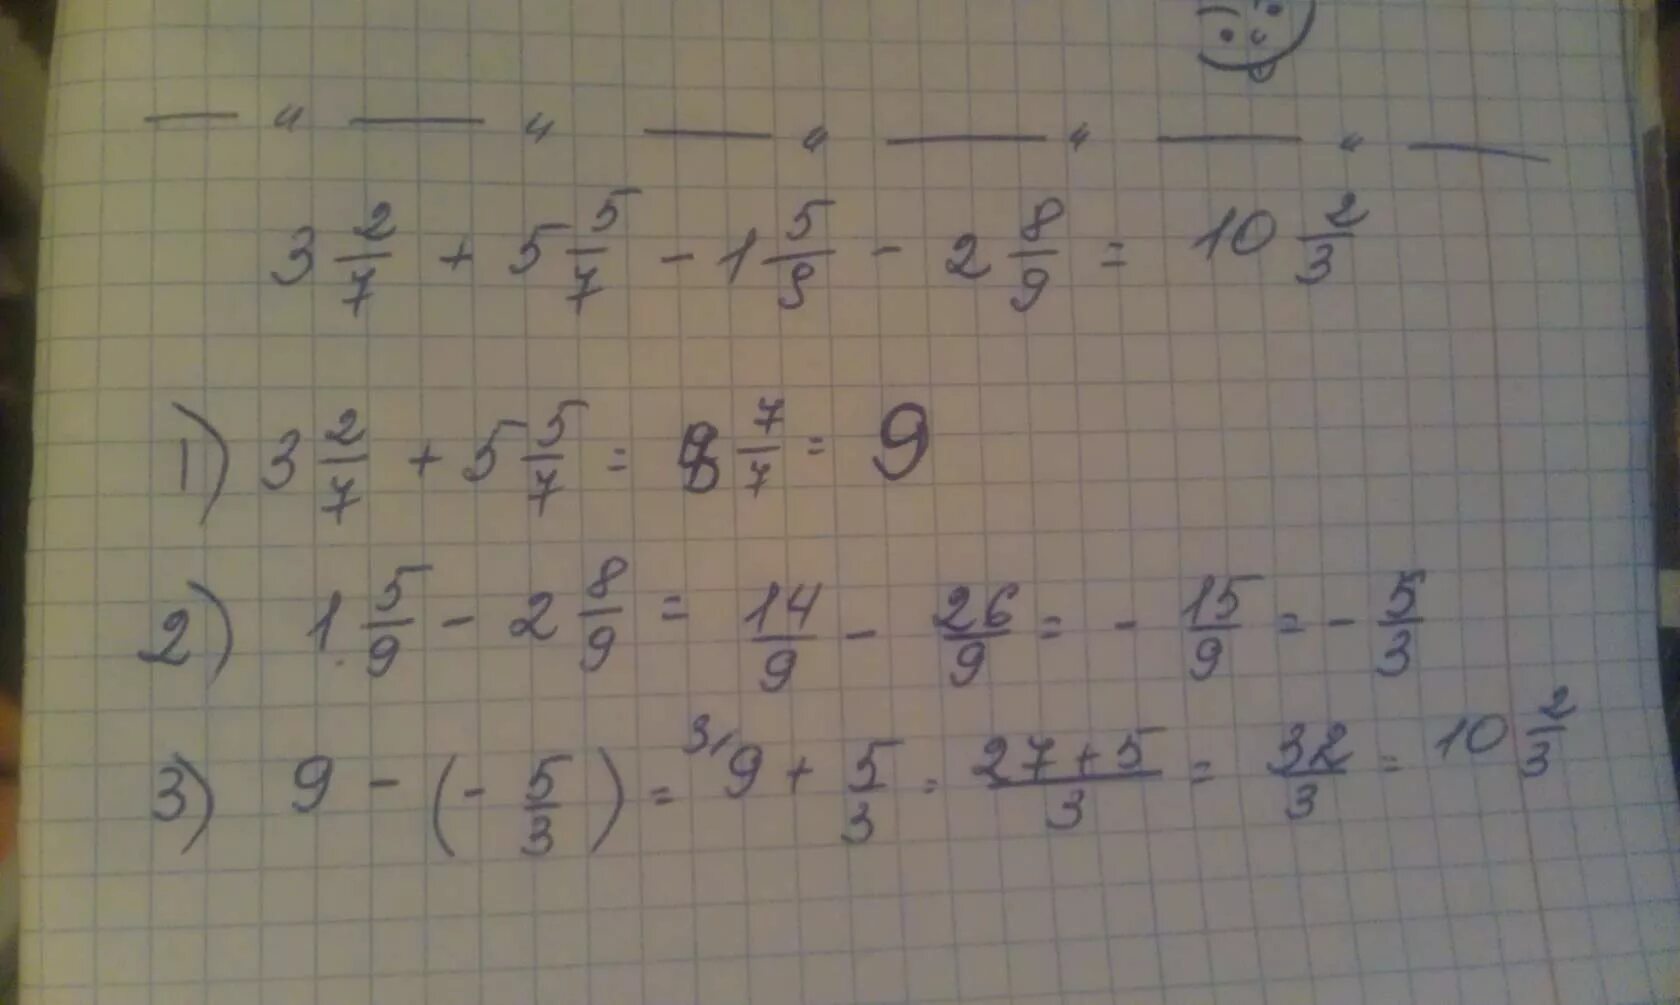 3 2/7 + 5 5/7 - 1 5/9 - 2 8/9 = 10 2/3
1) 3 2/7 + 5 5/7 = 8 7/7 = 9
2) 1 5/9 - 2 8/9 = 14/9 - 26/9 = - 15/9 = - 5/3
3) 9 - (- 5/3) = 3/ 9 + 5/3 = 27+5/3 = 32/3 = 10 2/3